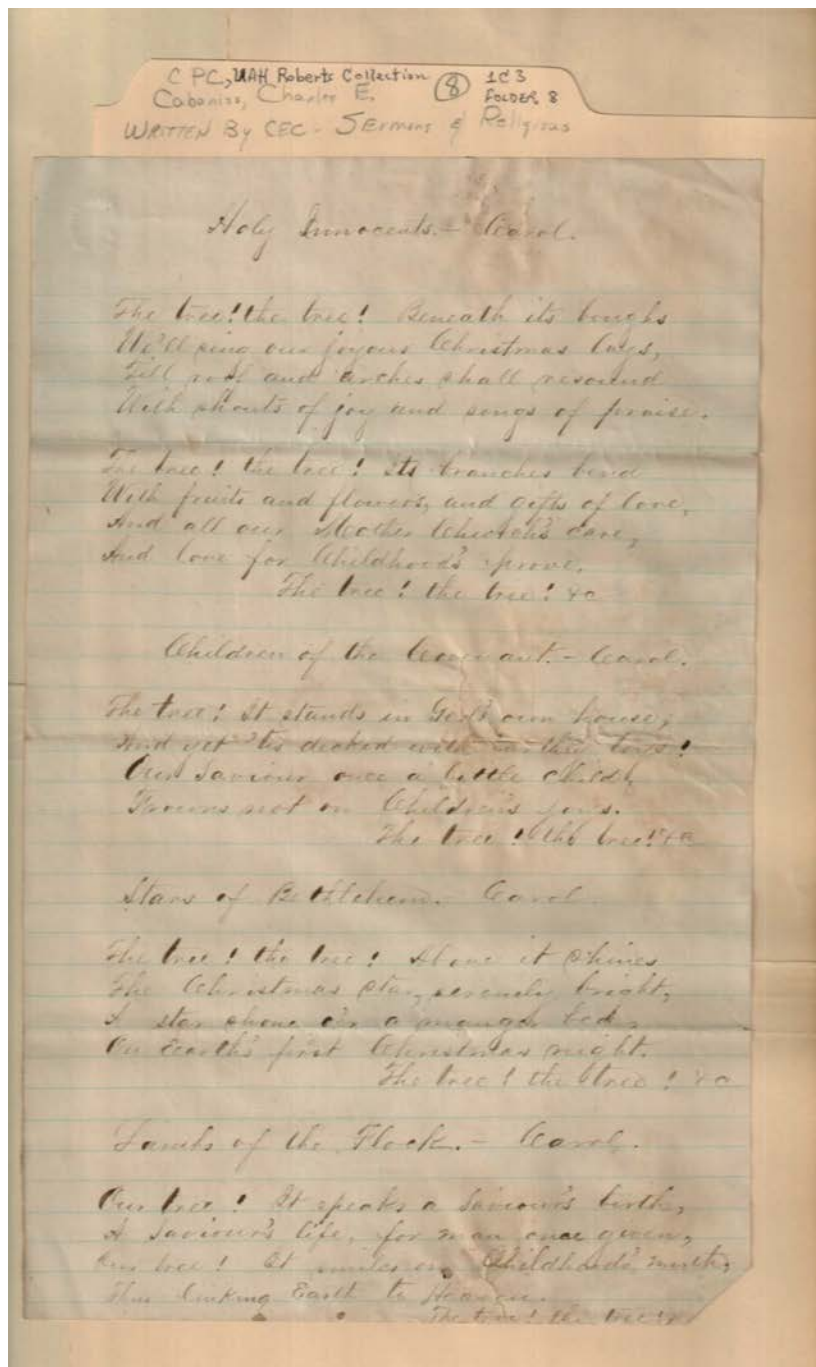 C PC, UAH Roberts Collection (8) 1C3
Cabaniss, Charles E. FOLDER 8
WRITTEN By CEC - SErmons & Religious
Holy Innocents. - Carol.
The tree! the tree! Beneath its boughs
We'll sing our joyous Christmas lays,
Till roof and arches shall resound
With shouts of joy and songs of praise.
The tree! the tree! Its branches bend
With fruits and flowers, and gifts of love,
And all our Mother Church's care,
And love for Childhood's prove.
The tree! the tree! &c
Children of the Covenant. - Carol.
The tree! It stands in God's own house,
And yet 'tis decked with earthly toys!
Our Saviour once a little child,
Frowns not on Children's joys.
The tree! the tree! &c
Stars of Bethlehem. Carol.
The tree! the tree! Above it shines
The Christmas star, serenely bright,
A star shone o'er a manger bed,
On Earth's first Christmas night.
The tree! the tree! &c
Lambs of the Flock. - Carol.
Our tree! It speaks a Saviour's birth,
A Saviour's life, for man once given,
Our tree! It smiles on Childhood's mirth,
Thus linking Earth to Heaven.
The tree! the tree!